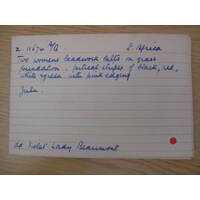 Z. 11674 a/b S. Africa
Two womens beadwork belts on grass
foundation. vertical stripes of black, red,
white & green with pink edging
Zulu.
dd. Violet Lady Beaumont